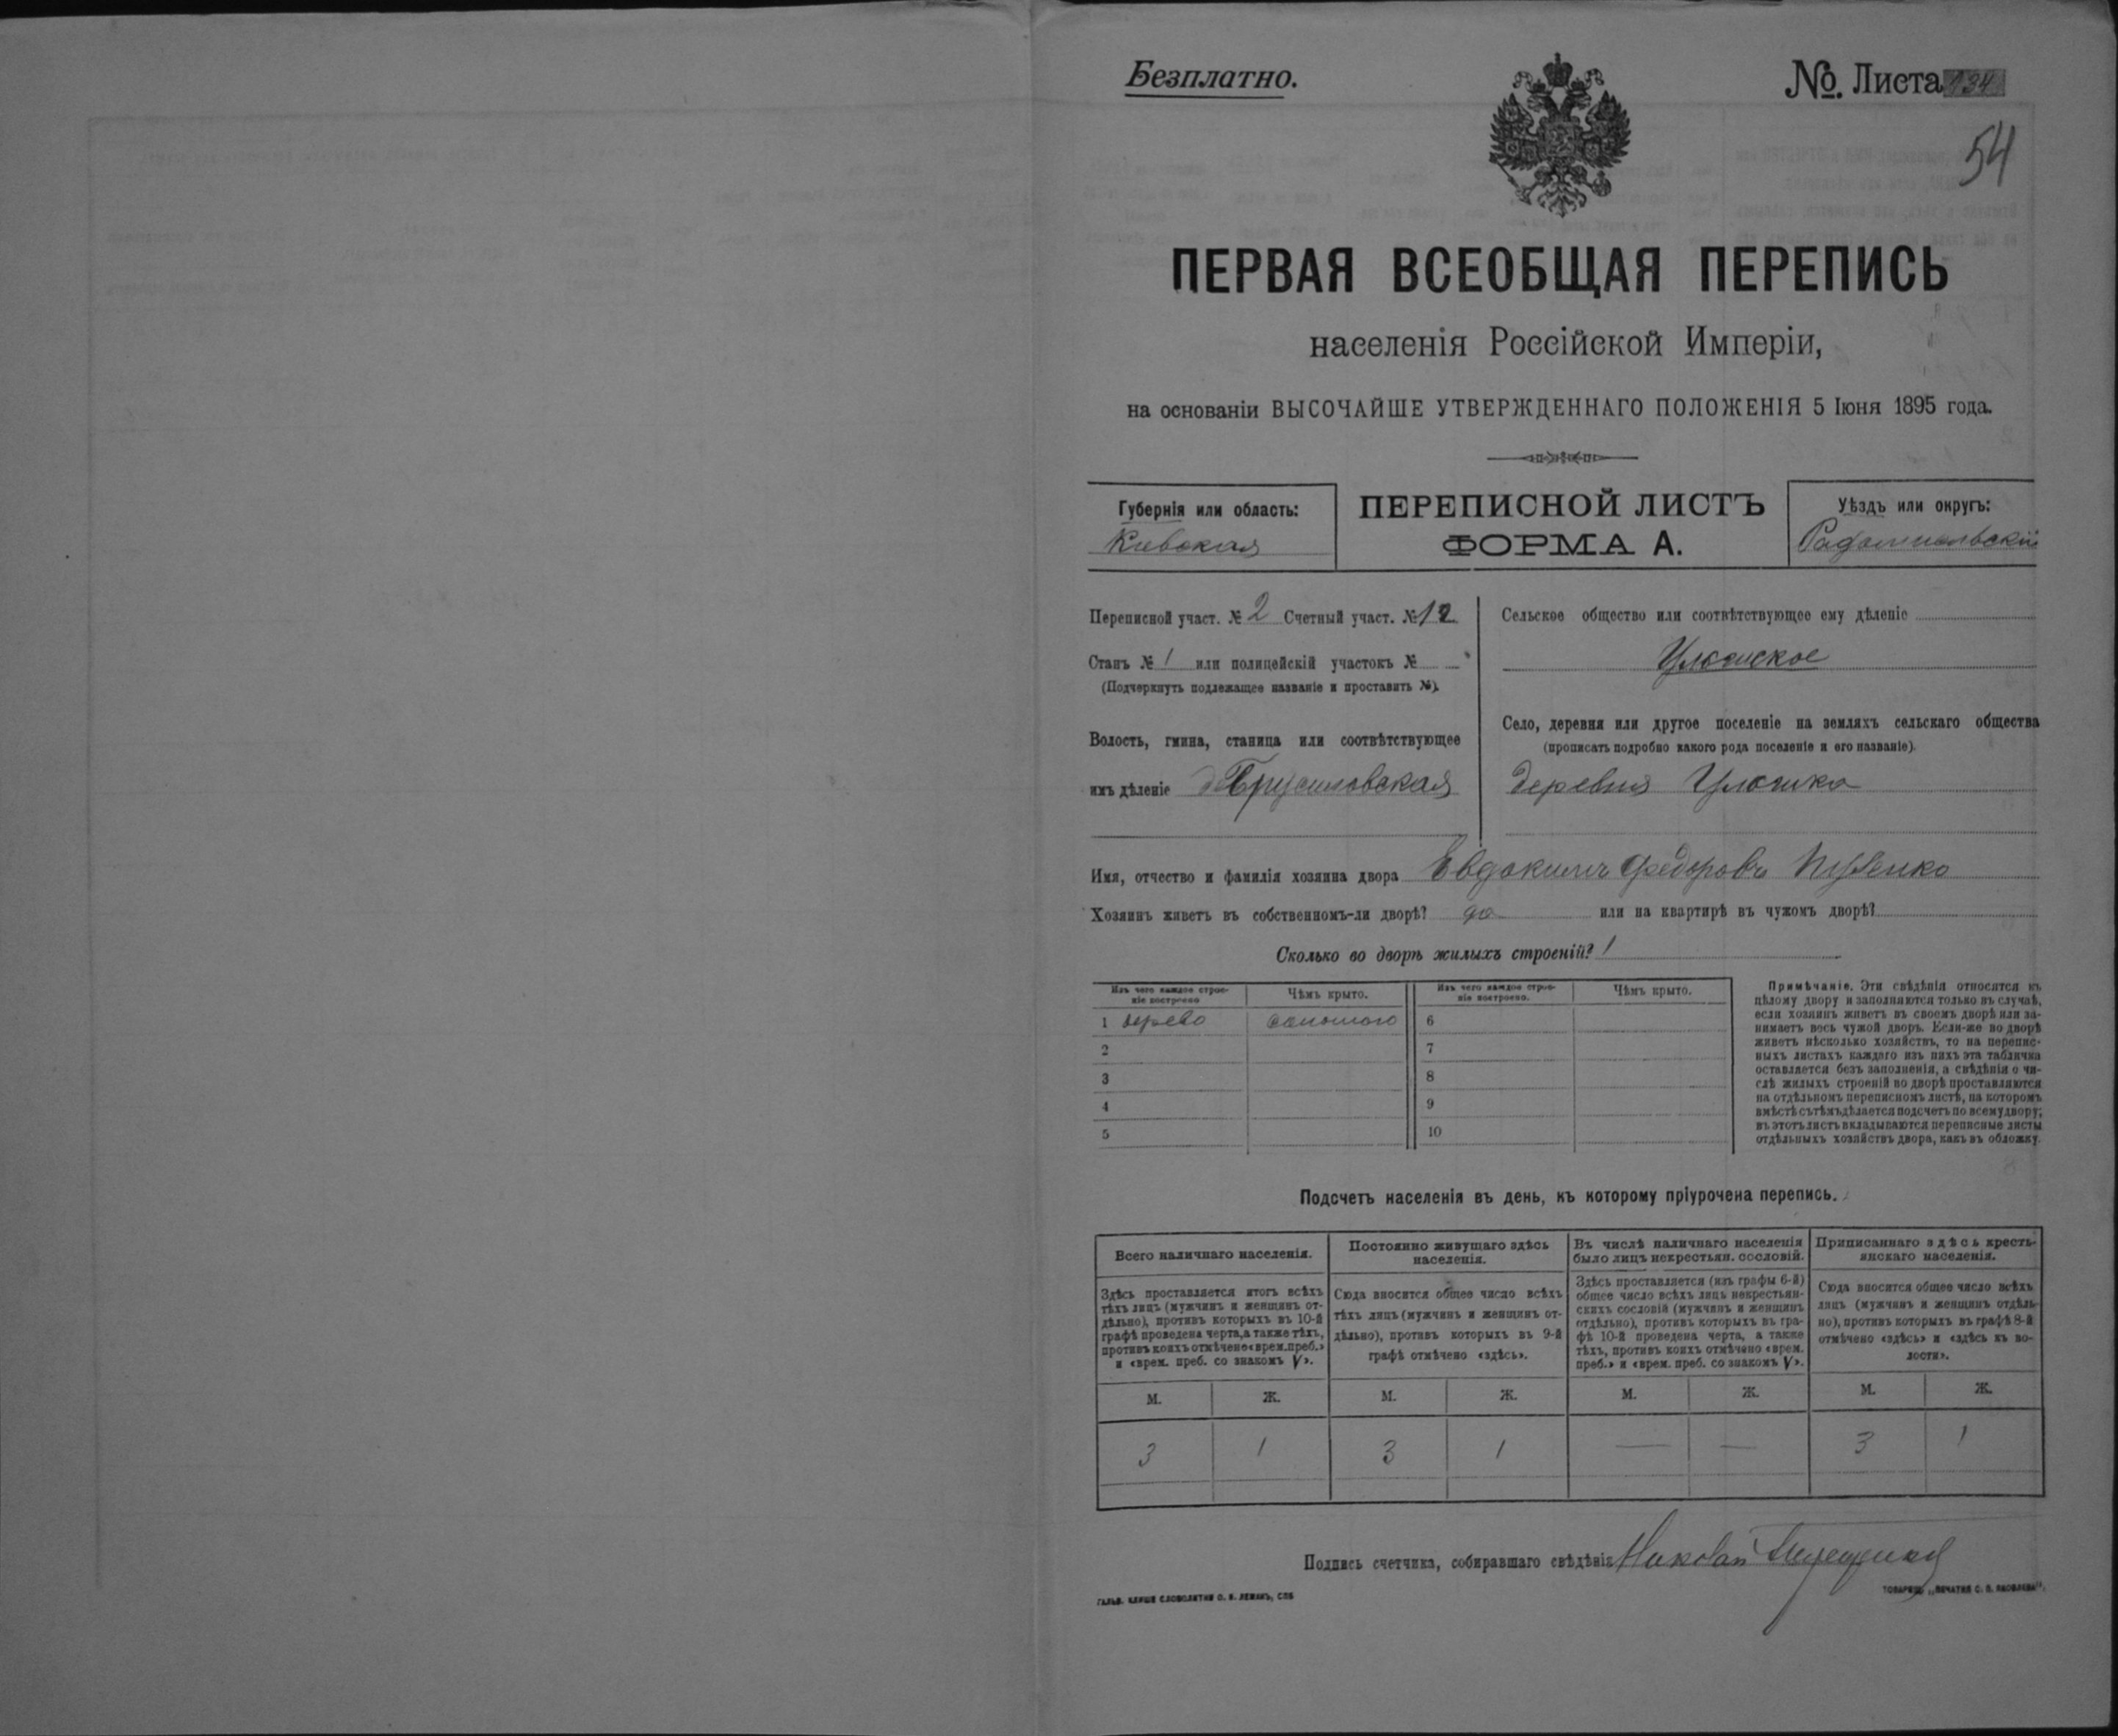 Безплатно.
№. Листа 134
54
ПЕРВАЯ ВСЕОБЩАЯ ПЕРЕПИСЬ
населенія Россійской Имперіи,
на основаніи ВЫСОЧАЙШЕ УТВЕРЖДЕННАГО ПОЛОЖЕНІЯ 5 Іюня 1895 года.
Губернія или область:
Кіевская
ПЕРЕПИСНОЙ ЛИСТЪ
ФОРМА А.
Уѣздъ или округъ:
Радомысльскій
Переписной участ. № 2 Счетный участ. № 12
Станъ № 1 или полицейскій участокъ №
(Подчеркнуть подлежащее названіе и проставить №).
Волость, гмина, станица или соотвѣтствующее
имъ дѣленіе Брусиловская
Сельское общество или соотвѣтствующее ему дѣленіе
Село, деревня или другое поселеніе на земляхъ сельскаго общества
(прописать подробно какого рода поселеніе и его названіе).
деревня
Имя, отчество и фамилія хозяина двора Евдокимъ Федоровъ
Хозяинъ живетъ въ собственномъ-ли дворѣ? да или на квартирѣ въ чужомъ дворѣ?
Сколько во дворѣ жилыхъ строеній? 1
Изъ чего каждое строе-
ніе построено
Чѣмъ крыто.
Изъ чего каждое строе-
ніе построено.
Чѣмъ крыто.
1 дерево соломою 6
2 7
3 8
4 9
5 10
Примѣчаніе. Эти свѣдѣнія относятся къ
цѣлому двору и заполняются только въ случаѣ,
если хозяинъ живетъ въ своемъ дворѣ или за-
нимаетъ весь чужой дворъ. Если-же во дворѣ
живетъ нѣсколько хозяйствъ, то на перепис-
ныхъ листахъ каждаго изъ нихъ эта табличка
оставляется безъ заполненія, а свѣдѣнія о чи-
слѣ жилыхъ строеній во дворѣ проставляются
на отдѣльномъ переписномъ листѣ, на которомъ
вмѣстѣ съ тѣмъ дѣлается подсчетъ по всему двору;
въ этотъ листъ вкладываются переписные листы
отдѣльныхъ хозяйствъ двора, какъ въ обложку.
Подсчетъ населенія въ день, къ которому пріурочена перепись.
Всего наличнаго населенія.
Здѣсь проставляется итогъ всѣхъ
тѣхъ лицъ (мужчинъ и женщинъ от-
дѣльно), противъ которыхъ въ 10-й
графѣ проведена черта, а также тѣхъ,
противъ коихъ отмѣчено «врем. преб.»
и «врем. преб. со знакомъ V».
Постоянно живущаго здѣсь
населенія.
Сюда вносится общее число всѣхъ
тѣхъ лицъ (мужчинъ и женщинъ от-
дѣльно), противъ которыхъ въ 9-й
графѣ отмѣчено «здѣсь».
Въ числѣ наличнаго населенія
было лицъ некрестьян. сословій.
Здѣсь проставляется (изъ графы 6-й)
общее число всѣхъ лицъ некрестьян-
скихъ сословій (мужчинъ и женщинъ
отдѣльно), противъ которыхъ въ гра-
фѣ 10-й проведена черта, а также
тѣхъ, противъ коихъ отмѣчено «врем.
преб.» и «врем. преб. со знакомъ V».
Приписаннаго здѣсь кресть-
янскаго населенія.
Сюда вносится общее число всѣхъ
лицъ (мужчинъ и женщинъ отдѣль-
но), противъ которыхъ въ графѣ 8-й
отмѣчено «здѣсь» и «здѣсь къ во-
лости».
М. Ж. М. Ж. М. Ж. М. Ж.
3 1 3 1 — — 3 1
Подпись счетчика, собиравшаго свѣдѣнія Николай
ГАЛЬВ. КЛИШЕ СЛОВОЛИТНИ О. И. ЛЕМАНЪ, СПБ
ТОВАРИЩ. „ПЕЧАТНЯ С. П. ЯКОВЛЕВА".